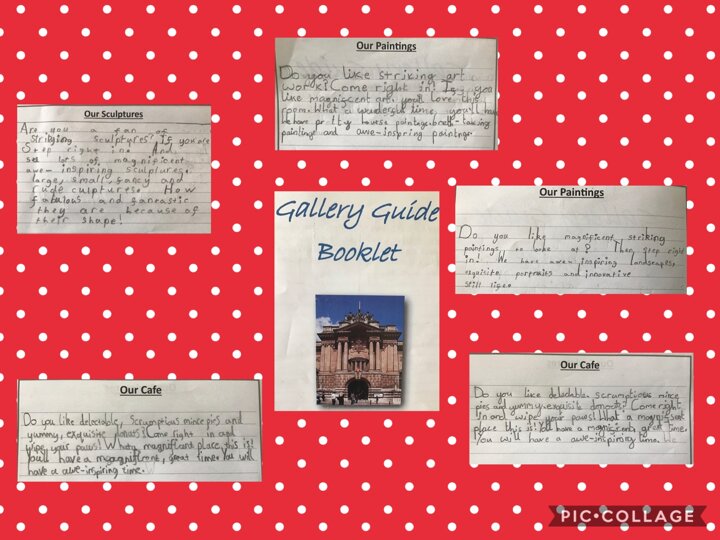 Our Paintings
Do you like striking art
work? Come right in! If you
like magnificent art, you'll love this
room. What a wonderful time, you'll have
We have pretty houses paintings, breath-taking
paintings and awe-inspring paintings.
Our Sculptures
Are you a fan of
striping sculptures? If you are
Step right in. And,
see lots of magnificent
awe-inspiring sculptures.
large, small, fancy and
rude culptures. How
fabulous and fancastic
they are because of
their shape!
Gallery Guide
Booklet
Our Paintings
Do you like magnificent striking
paintings, to looke at? Then, step right
in! We have awe-inspiring landscapes,
exquisite portraits and innovative
still lifes.
Our Cafe
Do you like delectable, scrumptious mince pies and
yummy, exquisite donuts? Come right in and
wipe your paws! What magnificant place, this is!
You'll have a magnificent, great time. You will
have a awe-inspiring time.
Our Cafe
Do you like delectable, scrumptious mince
pies and yummy exquisite donuts? Come right
in and wipe your paws! What a magnificent
place this is! You'll have a magnificent, great time.
You will have a awe-inspiring time. We
PIC•COLLAGE